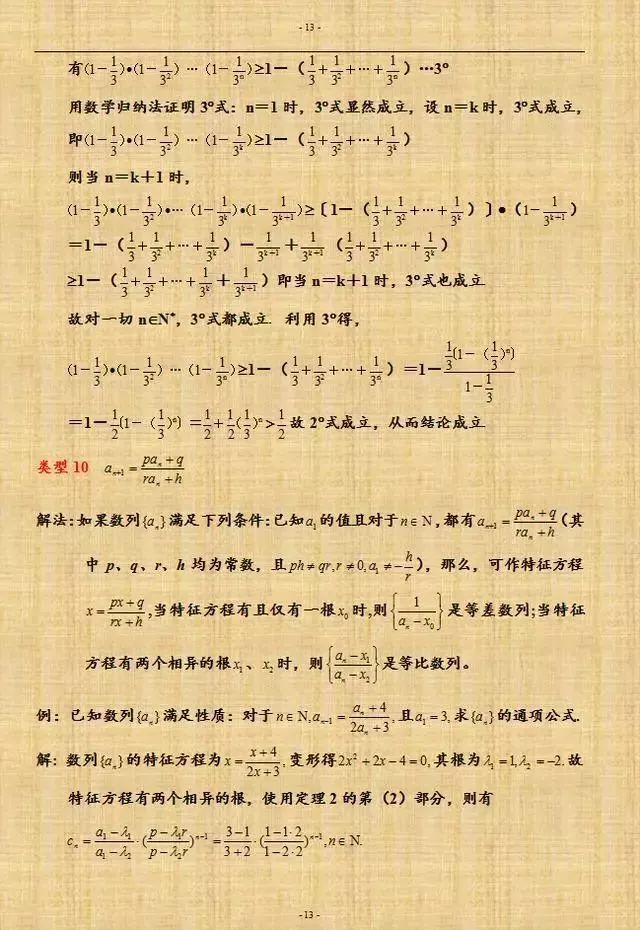 - 13 -
有(1-1/3)•(1-1/3²) … (1-1/3ⁿ)≥1-（1/3+1/3²+…+1/3ⁿ）…3°
用数学归纳法证明3°式：n=1时，3°式显然成立，设n=k时，3°式成立，
即(1-1/3)•(1-1/3²) … (1-1/3ᵏ)≥1-（1/3+1/3²+…+1/3ᵏ）
则当n=k+1时，
(1-1/3)•(1-1/3²)•… (1-1/3ᵏ)•(1-1/3ᵏ⁺¹)≥〔1-（1/3+1/3²+…+1/3ᵏ）〕•（1-1/3ᵏ⁺¹）
=1-（1/3+1/3²+…+1/3ᵏ）-1/3ᵏ⁺¹+1/3ᵏ⁺¹（1/3+1/3²+…+1/3ᵏ）
≥1-（1/3+1/3²+…+1/3ᵏ+1/3ᵏ⁺¹）即当n=k+1时，3°式也成立
故对一切n∈N*，3°式都成立. 利用3°得，
(1-1/3)•(1-1/3²) … (1-1/3ⁿ)≥1-（1/3+1/3²+…+1/3ⁿ）=1-(1/3〔1-（1/3）ⁿ〕)/(1-1/3)
=1-1/2〔1-（1/3）ⁿ〕=1/2+1/2(1/3)ⁿ>1/2故2°式成立，从而结论成立
类型10 aₙ₊₁=(paₙ+q)/(raₙ+h)
解法:如果数列{aₙ}满足下列条件:已知a₁的值且对于n∈N,都有aₙ₊₁=(paₙ+q)/(raₙ+h)(其
中p、q、r、h均为常数，且ph≠qr,r≠0,a₁≠-h/r)，那么，可作特征方程
x=(px+q)/(rx+h),当特征方程有且仅有一根x₀时,则{1/(aₙ-x₀)}是等差数列;当特征
方程有两个相异的根x₁、x₂时，则{(aₙ-x₁)/(aₙ-x₂)}是等比数列。
例：已知数列{aₙ}满足性质：对于n∈N,aₙ₋₁=(aₙ+4)/(2aₙ+3),且a₁=3,求{aₙ}的通项公式.
解：数列{aₙ}的特征方程为x=(x+4)/(2x+3),变形得2x²+2x-4=0,其根为λ₁=1,λ₂=-2.故
特征方程有两个相异的根，使用定理2的第（2）部分，则有
cₙ=(a₁-λ₁)/(a₁-λ₂)·((p-λ₁r)/(p-λ₂r))ⁿ⁻¹=(3-1)/(3+2)·((1-1·2)/(1-2·2))ⁿ⁻¹,n∈N.
- 13 -